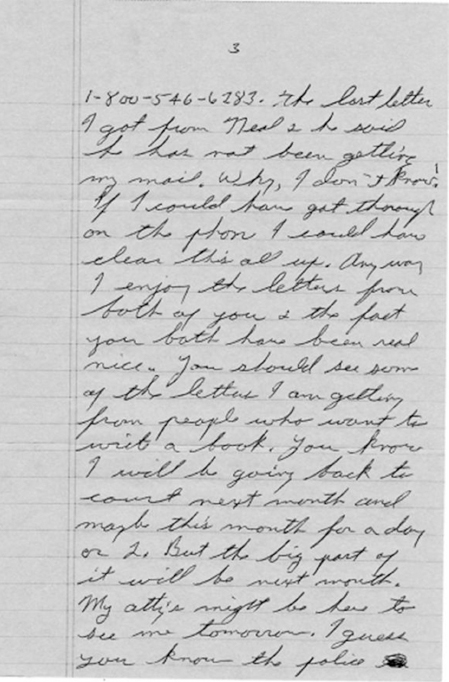 3
1-800-546-6283. The last letter
I got from Neal & he said
he has not been getting
my mail. Why, I don't know!
If I could have got through
on the phon I could have
clear this all up. Any way
I enjoy the letters from
both of you & the fact
you both have been real
nice. You should see som
of the letters I am getting
from people who want to
write a book. You know
I will be going back to
court next month and
mayb this month for a day
or 2. But the big part of
it will be next month.
My atty's might be here to
see me tomorrow. I guess
you know the police